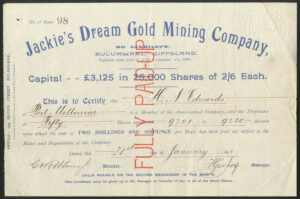 No. of Issue 98
Jackie's Dream Gold Mining Company,
NO LIABILITY.
BULUMWAAL, GIPPSLAND.
Capital - £3,125 in 25,000 Shares of 2/6 Each.
This is to Certify that Mrs J Edwards
of Port Melbourne is a Member of the above-named Company, and the Proprietor
of Fifty Shares numbered 9201 to 9250
upon which the sum of TWO SHILLINGS AND SIXPENCE per Share has been paid up, subject to the
Rules and Regulations of the Company.
Dated this 21st day of January
Director. Manager.
CALLS PAYABLE ON THE SECOND WEDNESDAY IN THE MONTH.
This certificate must be given up to the Manager on Transfer of any or all of the above Shares.
FULLY PAID UP